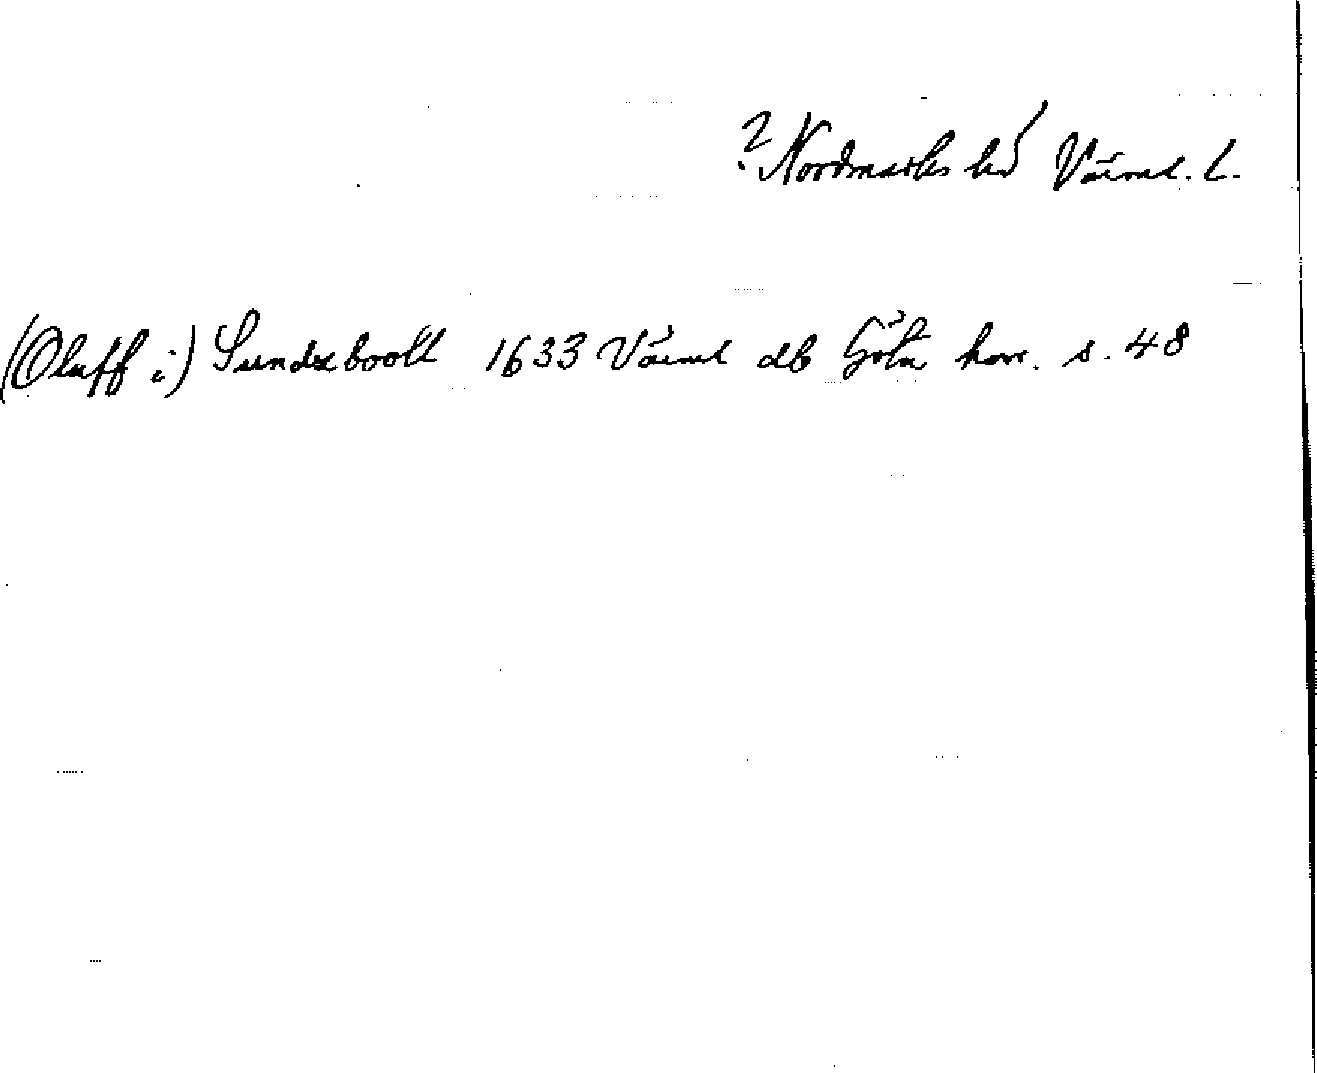 ? Nordmarks hd Värml. l.
(Oluff i) Sundzboolt 1633 Värml db Göta hovr. s. 48